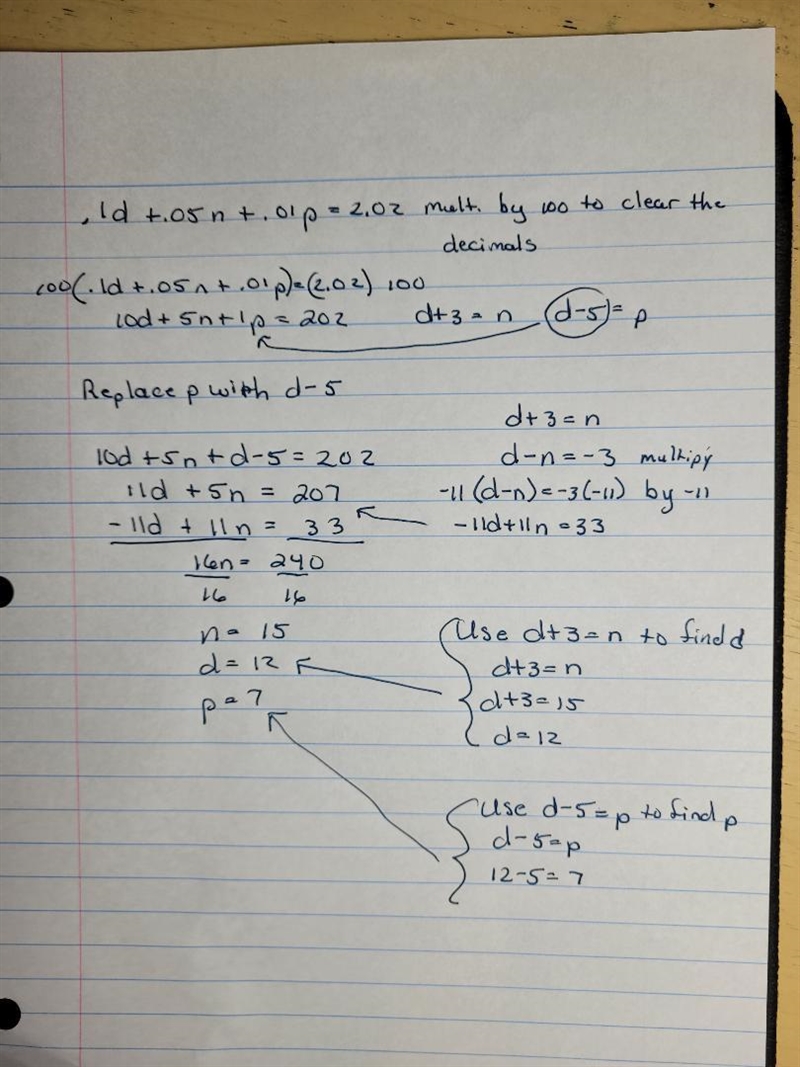 .1d +.05n +.01p = 2.02 mult. by 100 to clear the
decimals
100(.1d +.05n +.01p)=(2.02) 100
10d + 5n + 1p = 202 d+3 = n d-5 = p
Replace p with d-5
d+3 = n
10d + 5n + d-5 = 202 d-n = -3 multipy
11d + 5n = 207 -11(d-n)=-3(-11) by -11
-11d + 11n = 33 -11d+11n = 33
16n = 240
16 16
n = 15 Use d+3=n to find d
d = 12 d+3=n
p = 7 d+3=15
d=12
Use d-5=p to find p
d-5=p
12-5=7